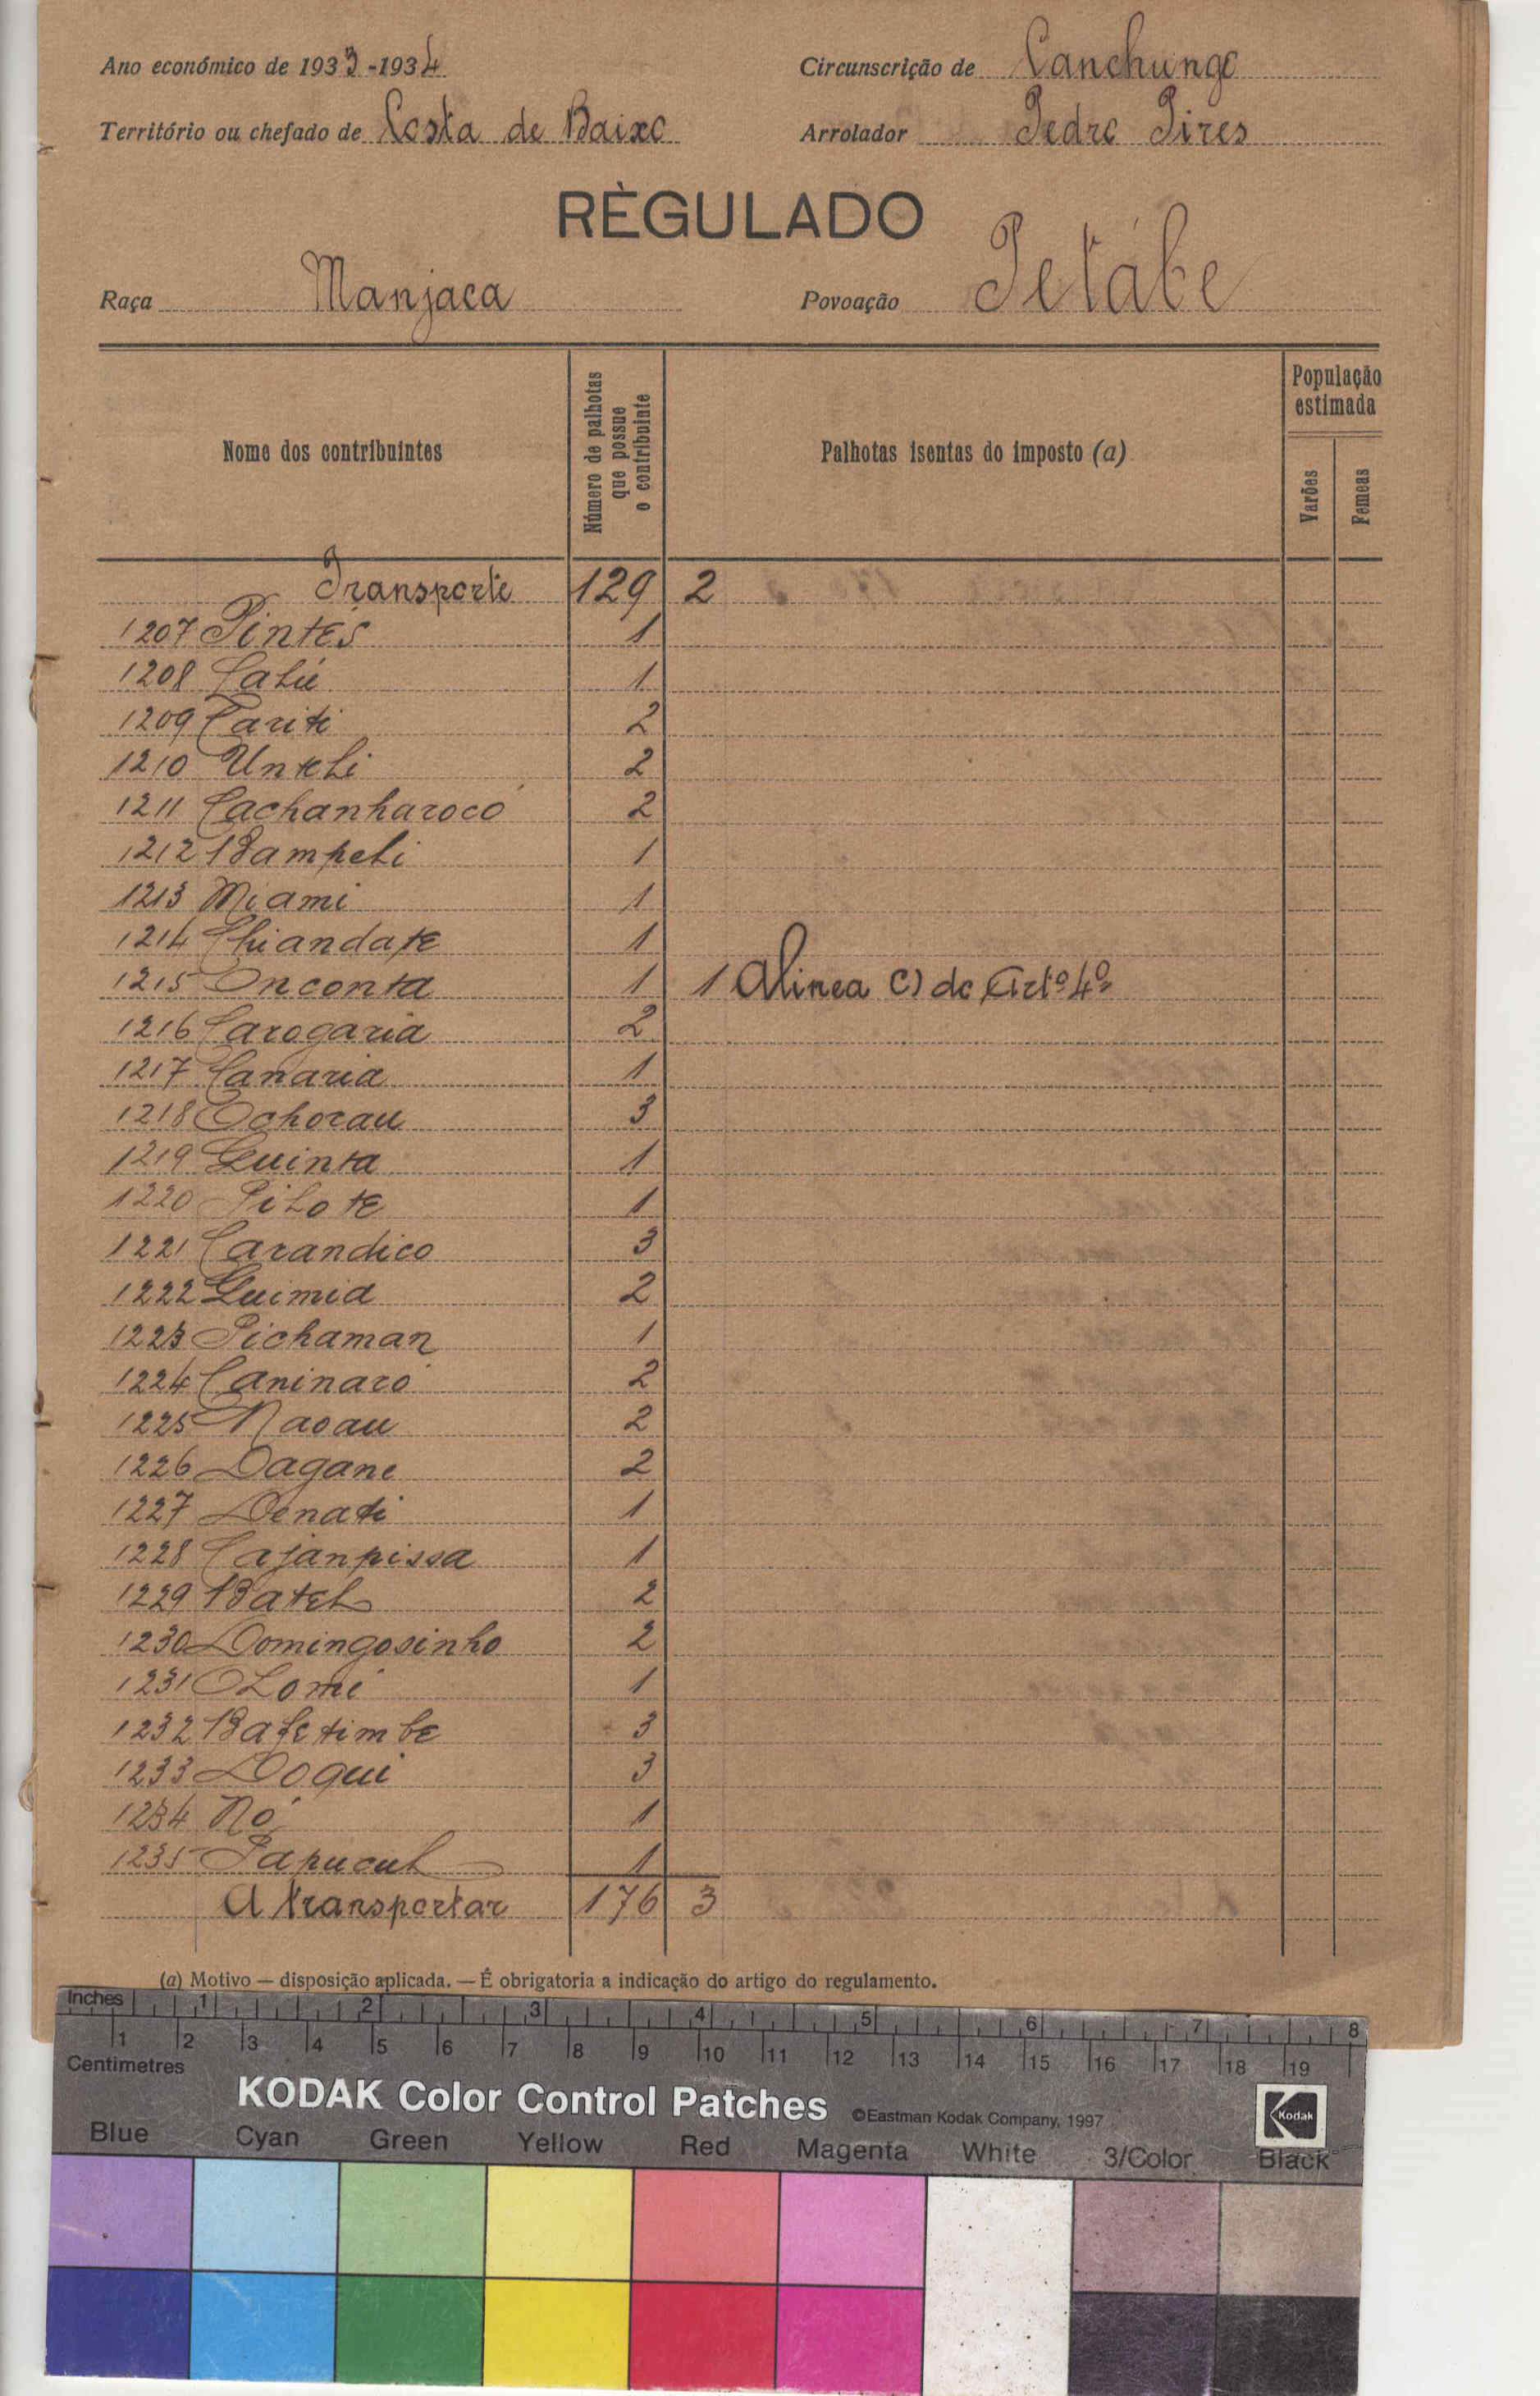 Ano económico de 1933-1934 Circunscrição de Canchungo
Território ou chefado de Costa de Baixo Arrolador Pedro Pires
RÈGULADO
Raça Manjaca Povoação Petábe
Nome dos contribuintes Número de palhotas que possue o contribuinte Palhotas isentas do imposto (a) População estimada
Varões Femeas
Transporte 129 2
1207 Pintes 1
1208 Calú 1
1209 Cariti 2
1210 Untchi 2
1211 Cachanharocó 2
1212 Bampeli 1
1213 Miami 1
1214 Chiandate 1
1215 Onconta 1 1 Alinea C) do Artº 4º
1216 Carogaria 2
1217 Canaria 1
1218 Ochorau 3
1219 Quinta 1
1220 Pilote 1
1221 Carandico 3
1222 Guimia 2
1223 Pichaman 1
1224 Caninaró 2
1225 Naoau 2
1226 Dagane 2
1227 Denati 1
1228 Cajanpissa 1
1229 Batel 2
1230 Domingosinho 2
1231 Lomi 1
1232 Bafetimbe 3
1233 Doqui 3
1234 Nó 1
1235 Papucul 1
A transportar 176 3
(a) Motivo — disposição aplicada. — É obrigatoria a indicação do artigo do regulamento.
Inches 1 2 3 4 5 6 7 8
1 2 3 4 5 6 7 8 9 10 11 12 13 14 15 16 17 18 19
Centimetres
KODAK Color Control Patches ©Eastman Kodak Company, 1997 Kodak
Blue Cyan Green Yellow Red Magenta White 3/Color Black